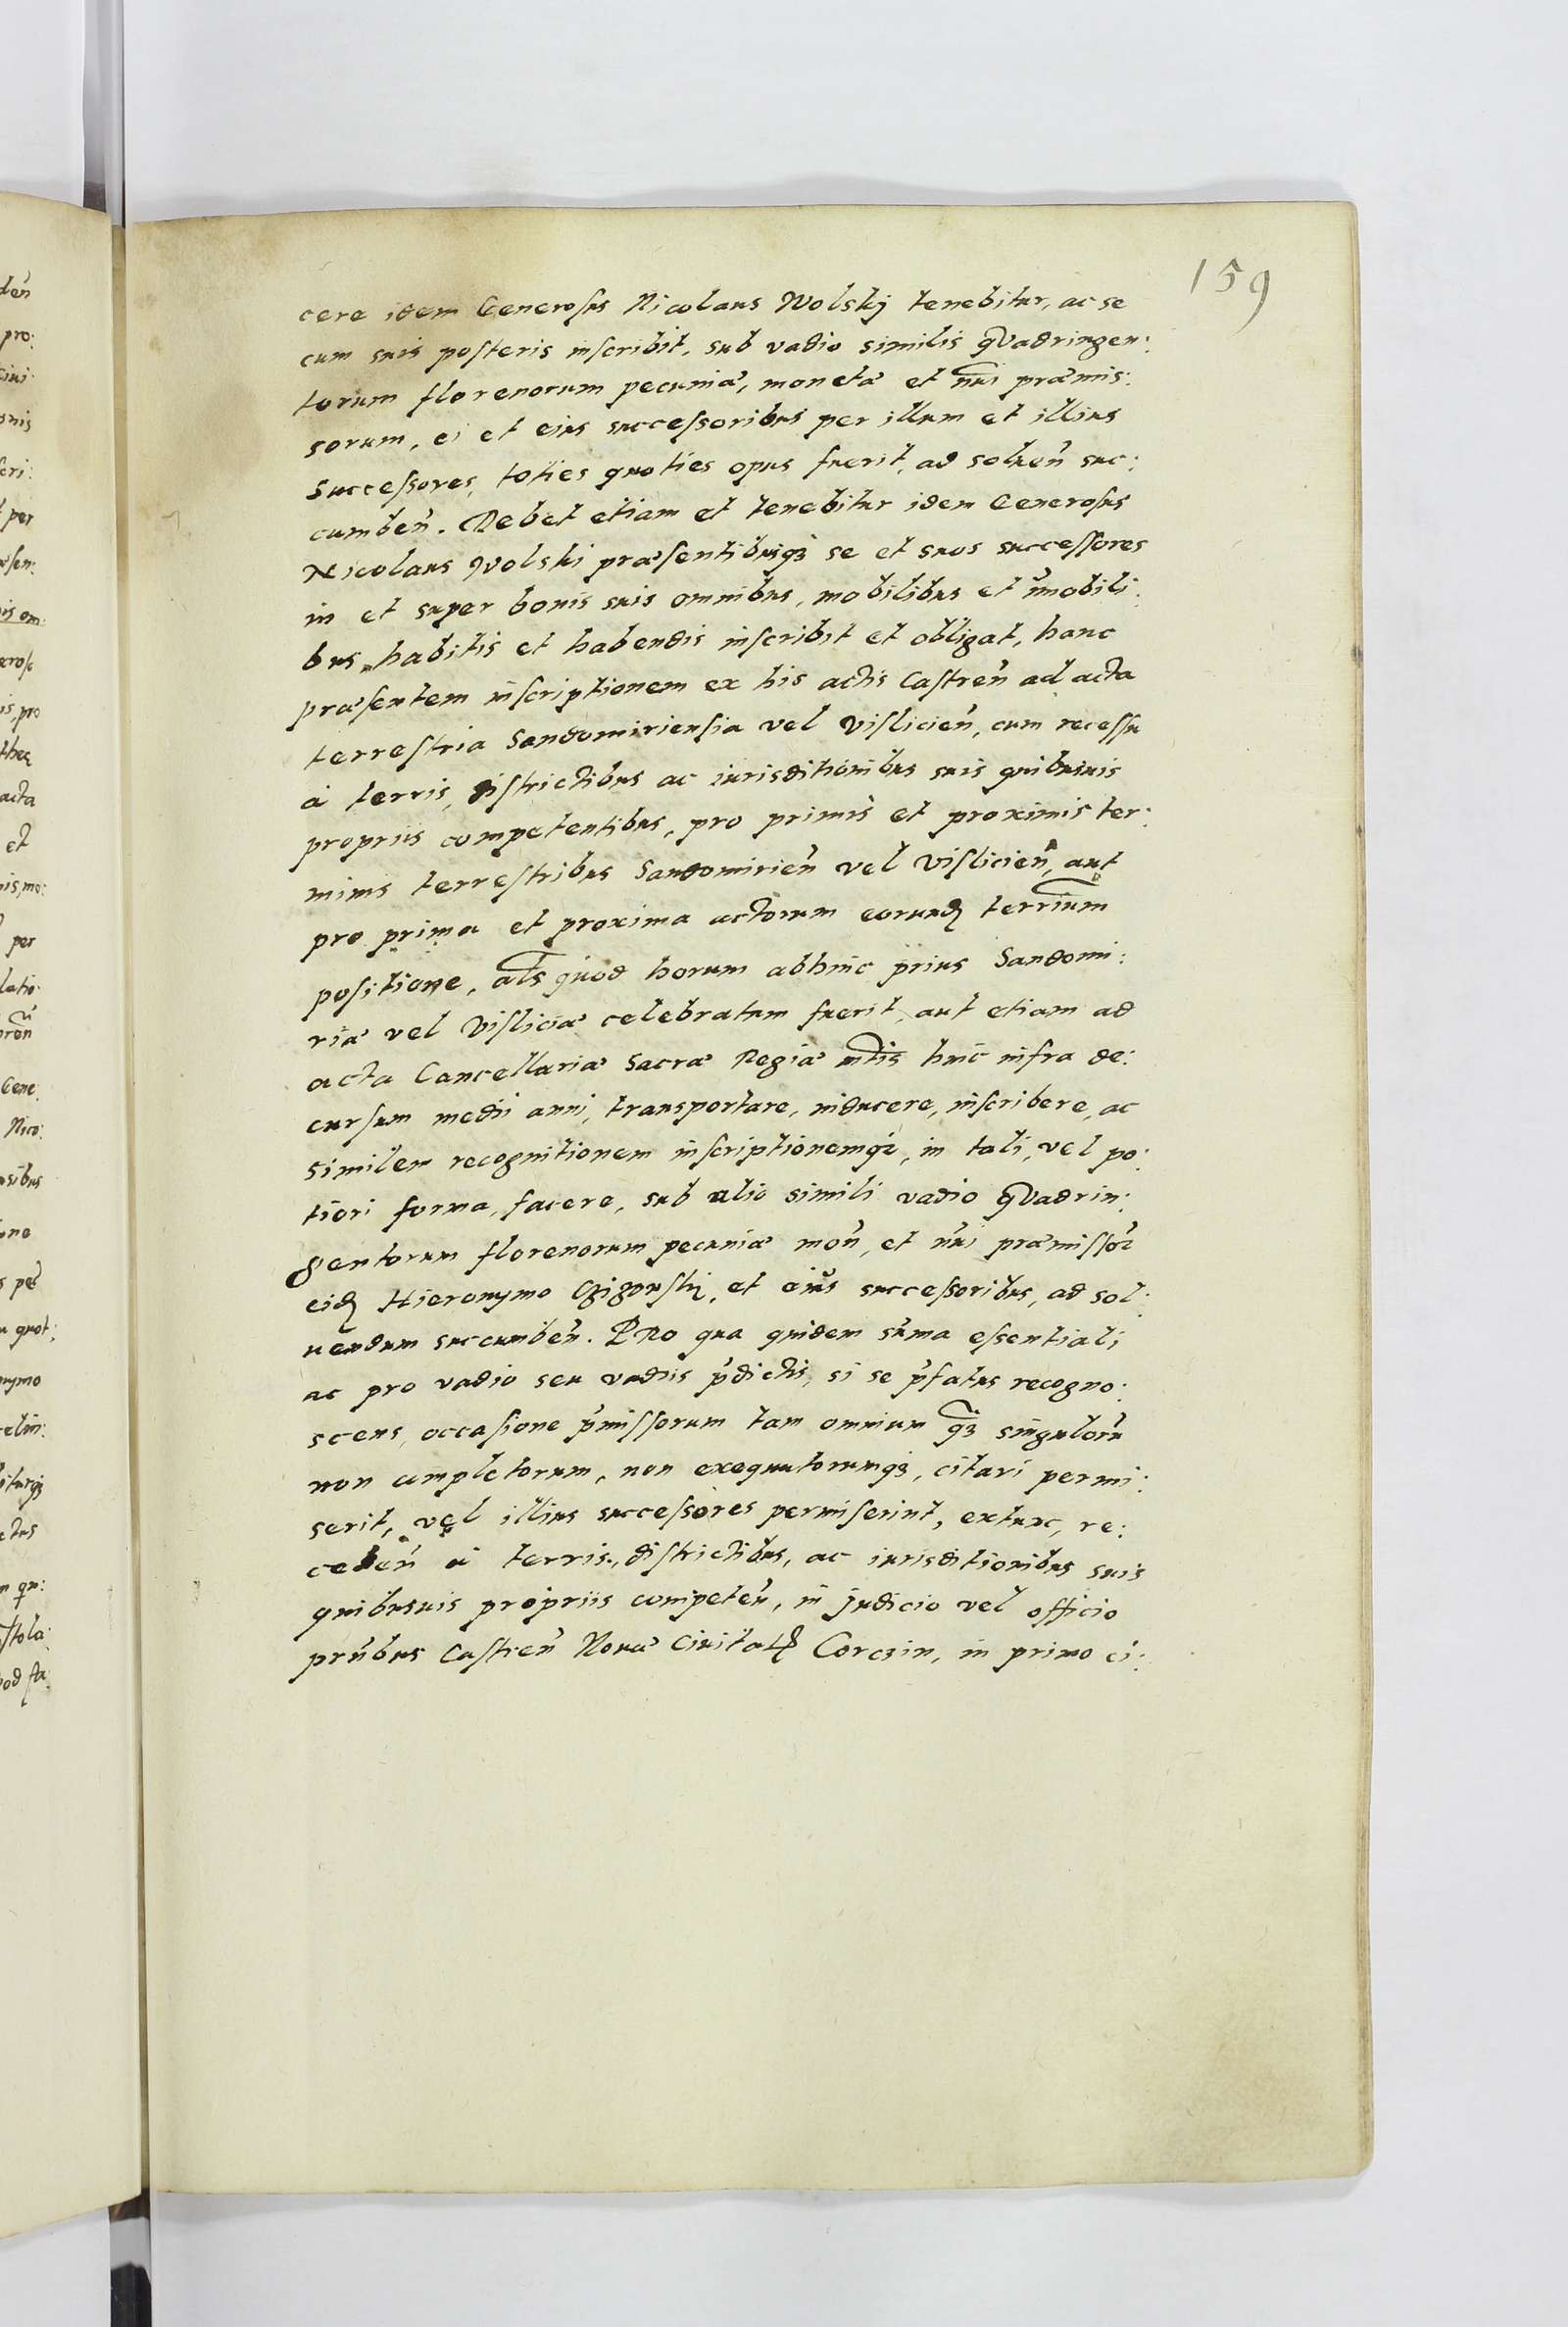 159
cere idem Generosus Nicolaus Wolskÿ tenebitur, ac se
cum suis posteris inscribit, sub vadio similis quadringen:
torum florenorum pecuniæ, monetæ et nŭi præmis:
sorum, ei et eius successoribus per illum et illius
Successores, toties quoties opus fuerit, ad soluen̄ suc:
cumben̄. Debet etiam et tenebitur idem Generosus
Nicolaus Wolski præsentibusq3 se et suos successores
in et super bonis suis omnibus, mobilibus et im̄obili:
bus, habitis et habendis inscribit et obligat, hanc
præsentem inscriptionem ex his actis Castren̄ ad acta
terrestria Sandomiriensia vel Vislicien̄, cum recessu
à terris, districtibus ac iurisditionibus suis quibusuis
propriis competentibus, pro primis et proximis ter:
minis terrestribus Sandomirien̄ vel Vislicien̄, aut
pro prima et proxima actorum eorund terrium
positione, als quod horum abhinc prius Sandomi:
riæ vel Visliciæ celebratum fuerit, aut etiam ad
acta Cancellariæ Sacræ Regiæ mtis hinc infra de:
cursum medii anni, transportare, inducere, inscribere, ac
similem recognitionem inscriptionemq3, in tali, vel po:
tiori forma, facere, sub alio simili vadio quadrin:
gentorum florenorum pecuniæ mon̄, et nŭi præmissor
eid Hieronymo et eius successoribus, ad sol:
uendum succumben̄. PRo qua quidem sum̄a essentiali
ac pro vadio seu vadiis p̄dictis, si se p̄fatus recogno:
scens, occasione p̄missorum tam omnium q3 singulorū
non completorum, non exequutorumq3, citari permi:
serit, vel illius successores permiserint, extunc, re:
ceden̄ à terris, districtibus, ac iurisditionibus suis
quibusuis propriis competen̄, in judicio vel officio
prn̄tibus Castren̄ Nouæ Ciuitatis Corczin, in primo ci:
den̄
pro:
onis
per
is om:
is, pro
acta
et
is, mo:
per
Gene:
Nico:
quot:
nymo